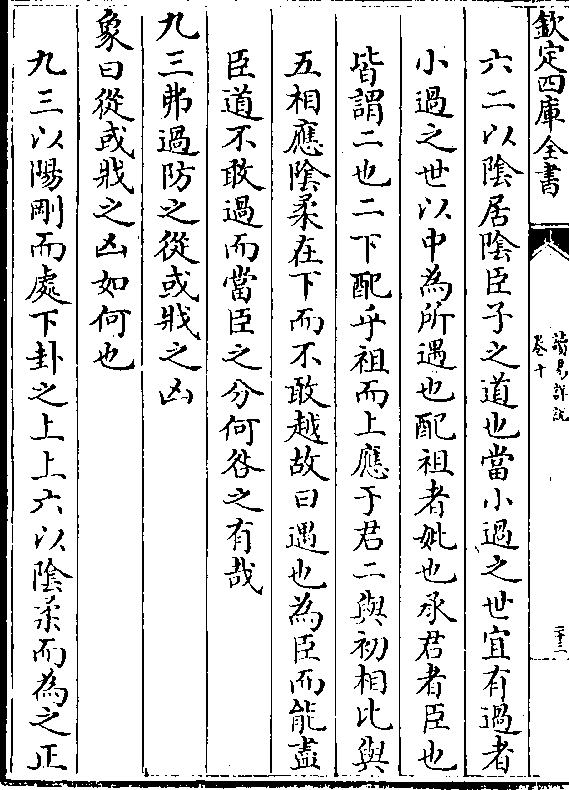 欽定四庫全書
讀易詳說
卷十
二十三
六二以陰居陰臣子之道也當小過之世宜有過者
小過之世以中為所遇也配祖者妣也承君者臣也
皆謂二也二下配乎祖而上應于君二與初相比與
五相應陰柔在下而不敢越故曰遇也為臣而能盡
臣道不敢過而當臣之分何咎之有哉
九三弗過防之從或戕之凶
象曰從或戕之凶如何也
九三以陽剛而處下卦之上上六以陰柔而為之正